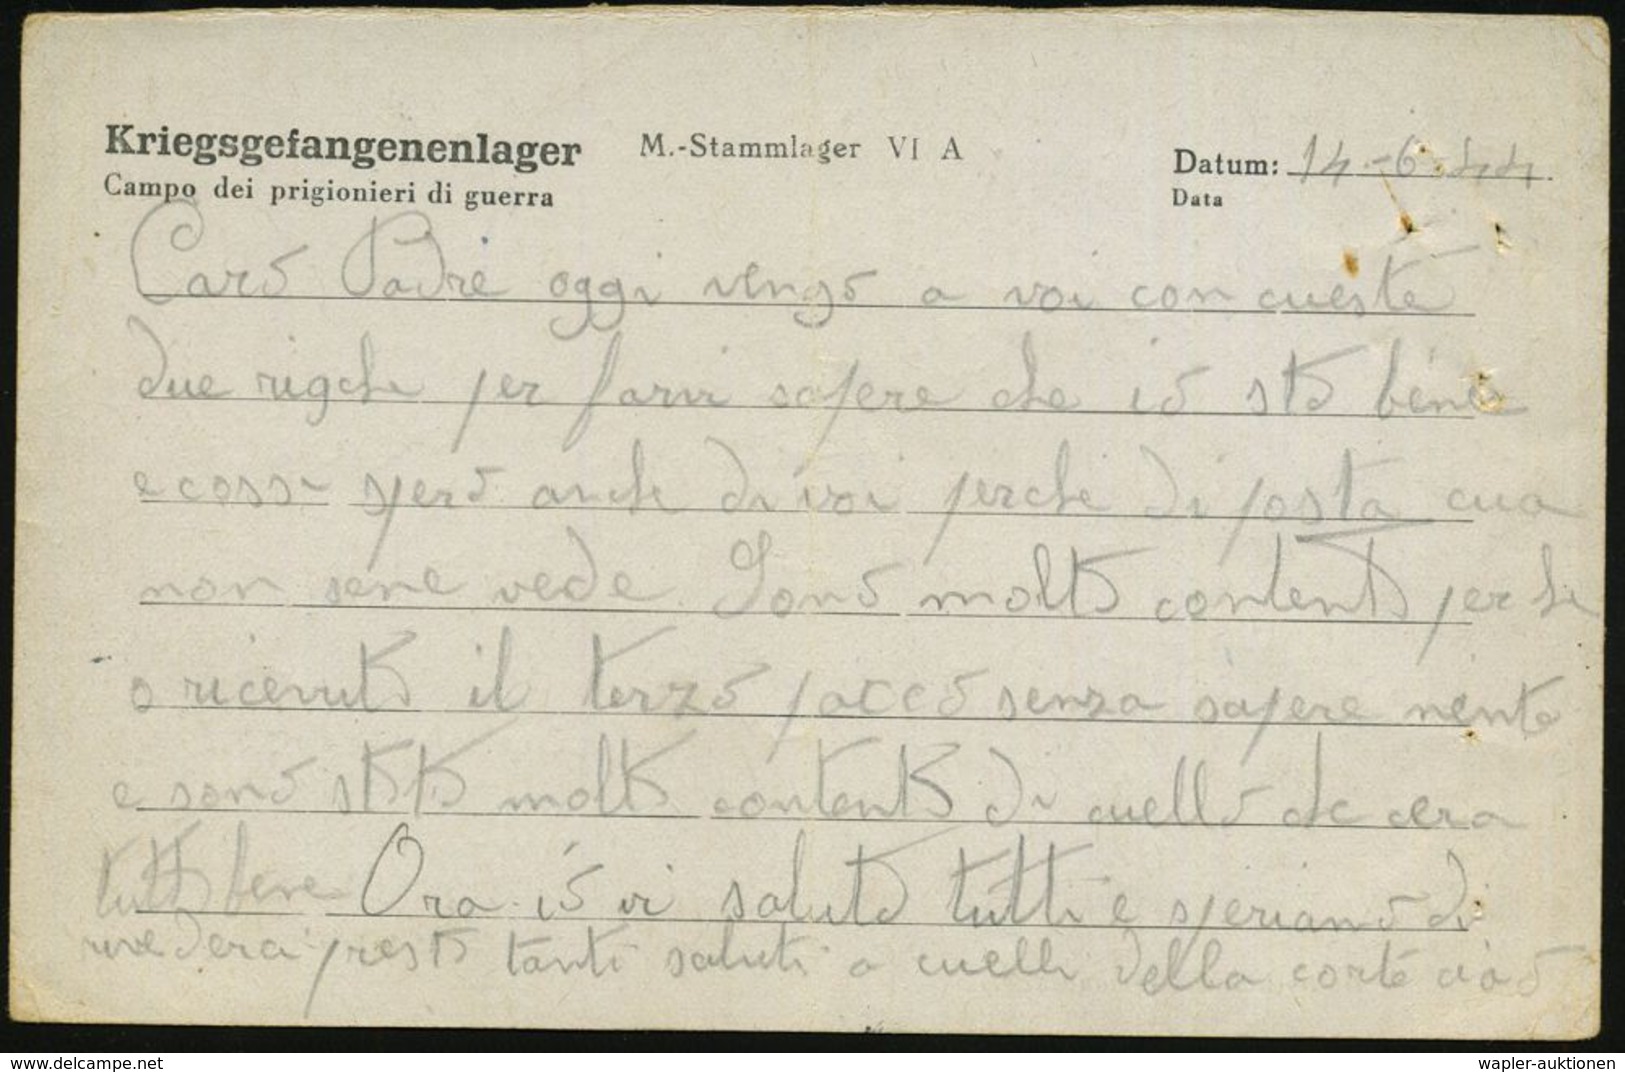 Kriegsgefangenenlager M.-Stammlager VI A Datum: 14-6-44
Campo dei prigionieri di guerra Data
Caro Padre oggi vengo a voi con cueste
due righe per farvi sapere che io sto bene
e cossi spero anche di voi perche di posta cua
non sene vede. Sono molto contento perche
o ricevuto il terzo pacco senza sapere niente
e sono stato molto contento di cuello che cera
tutto bene Ora io vi saluto tutti e speriamo di
rivederci presto tanti saluti a cuelli della corte ciao
delcampe.net
wapler-auktionen